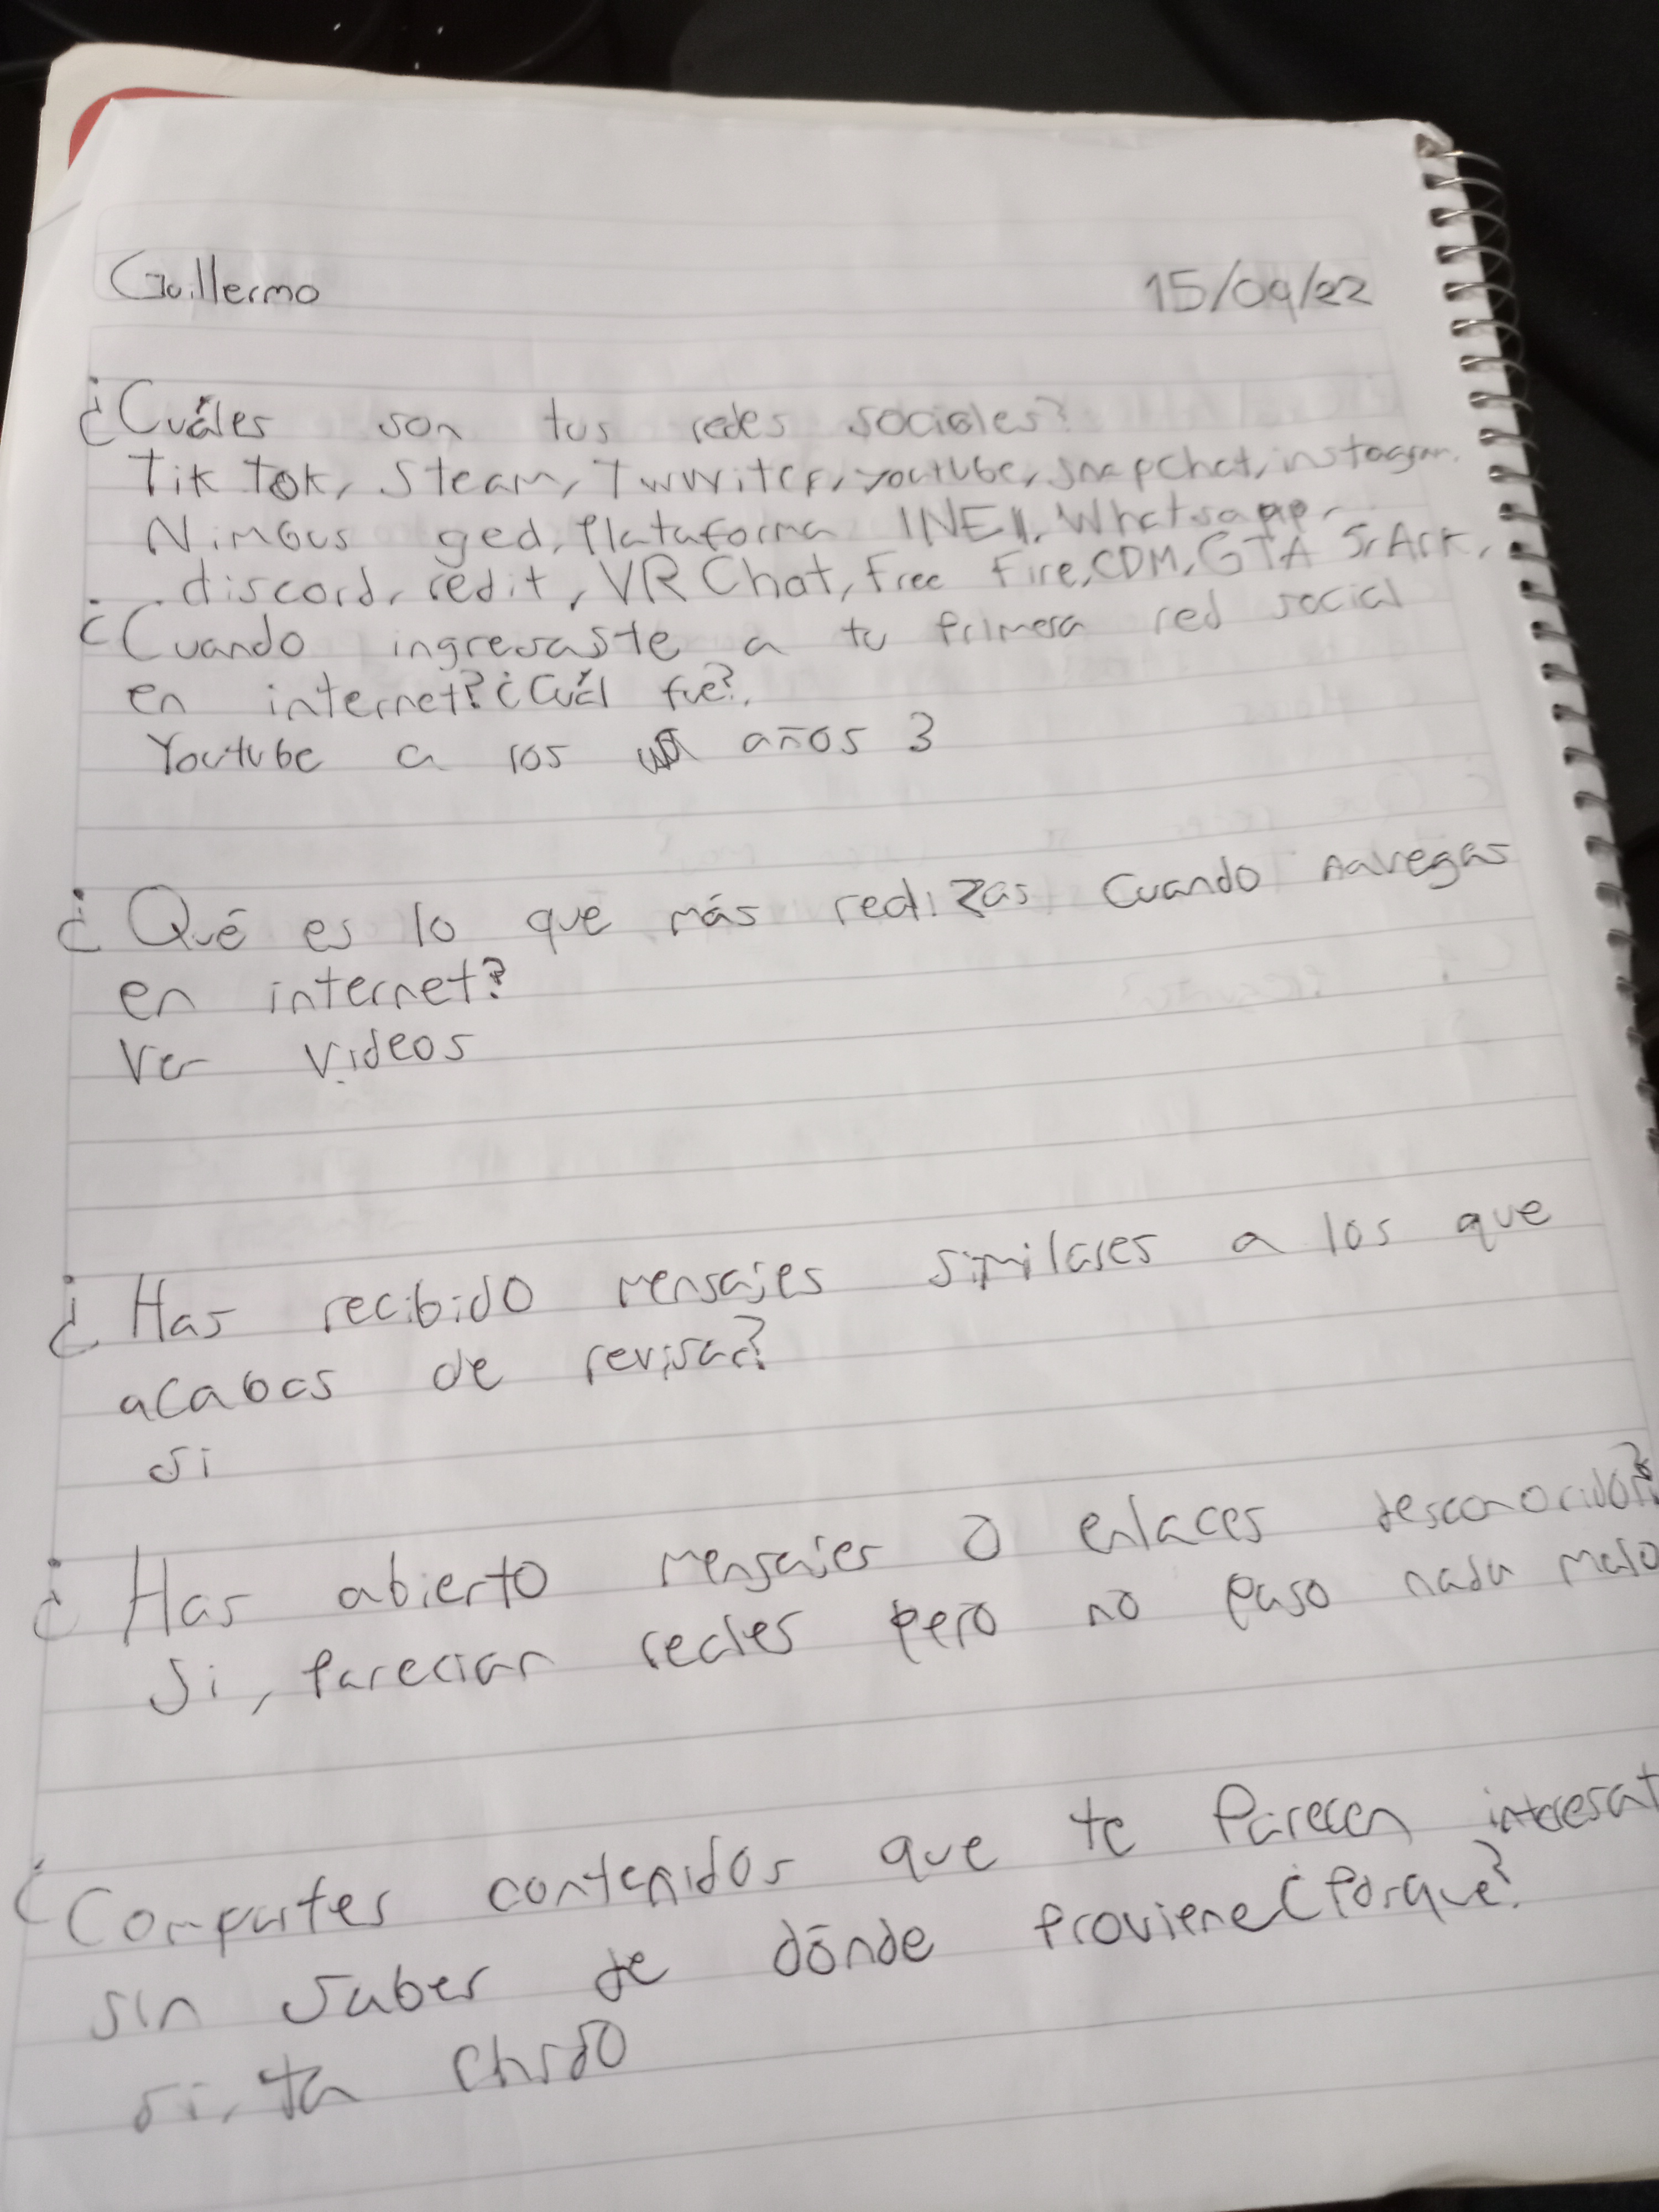 Guillermo 15/09/22
¿Cuáles son tus redes sociales?
Tik Tok, Steam, Twwiter, youtube, snapchat, instagram.
Nimbus ged, Plataforma INE, Whatsapp,
discord, redit, VR Chat, Free Fire, CDM, GTA 5, Ark,
¿Cuando ingresaste a tu primera red social
en internet? ¿Cuál fue?.
Youtube a los años 3
¿Qué es lo que más realizas cuando navegas
en internet?
Ver videos
¿Has recibido mensajes similares a los que
acabas de revisar?
si
¿Has abierto mensajes o enlaces desconocidos?
Si, parecian reales pero no paso nada malo
¿Compartes contenidos que te parecen interesat
sin saber de dónde proviene ¿Porque?
si, ta chido